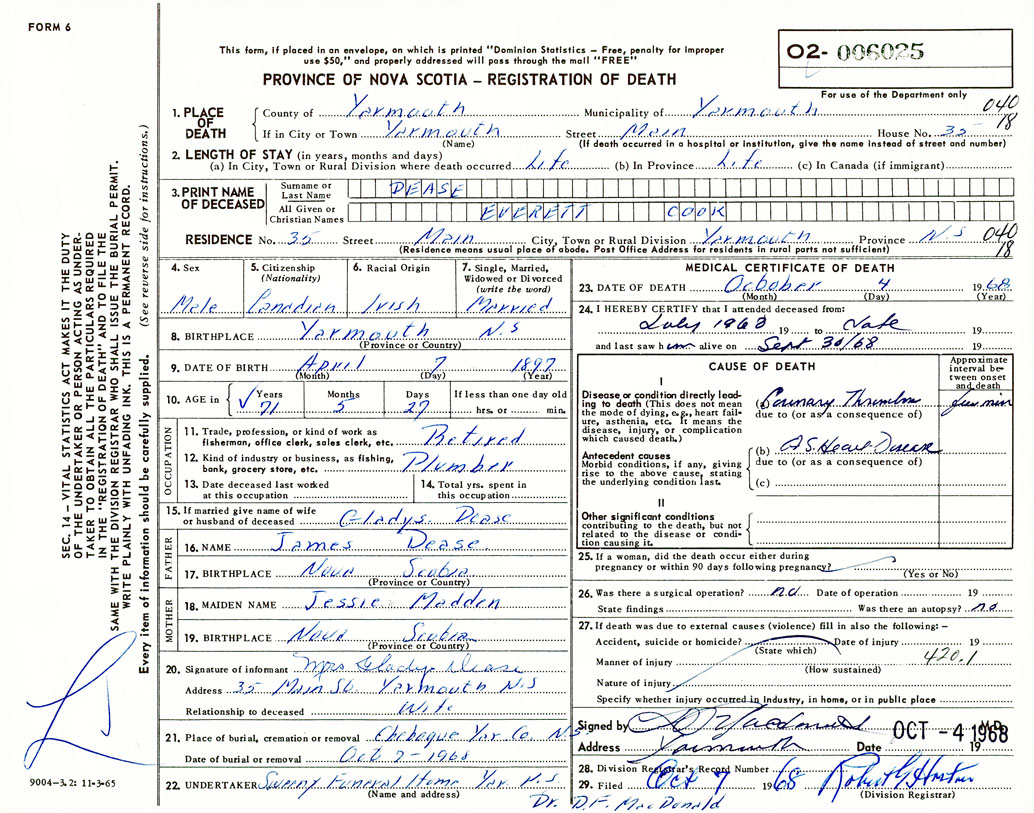 FORM 6
This form, if placed in an envelope, on which is printed "Dominion Statistics – Free, penalty for improper
use $50," and properly addressed will pass through the mail "FREE"
PROVINCE OF NOVA SCOTIA – REGISTRATION OF DEATH
02- 006025
For use of the Department only
040
18
1. PLACE OF DEATH
County of Yarmouth Municipality of Yarmouth
If in City or Town Yarmouth Street Main House No. 35
(Name) (If death occurred in a hospital or institution, give the name instead of street and number)
2. LENGTH OF STAY (in years, months and days)
(a) In City, Town or Rural Division where death occurred Life (b) In Province Life (c) In Canada (if immigrant)
3. PRINT NAME OF DECEASED
Surname or Last Name DEASE
All Given or Christian Names EVERETT COOK
RESIDENCE No. 35 Street Main City, Town or Rural Division Yarmouth Province N.S
040
18
(Residence means usual place of abode. Post Office Address for residents in rural parts not sufficient)
4. Sex
Male
5. Citizenship
(Nationality)
Canadian
6. Racial Origin
Irish
7. Single, Married,
Widowed or Divorced
(write the word)
Married
8. BIRTHPLACE Yarmouth N.S
(Province or Country)
9. DATE OF BIRTH April 7 1897
(Month) (Day) (Year)
10. AGE in
Years Months Days If less than one day old
71 5 27 hrs. or min.
OCCUPATION
11. Trade, profession, or kind of work as
fisherman, office clerk, sales clerk, etc. Retired
12. Kind of industry or business, as fishing,
bank, grocery store, etc. Plumber
13. Date deceased last worked
at this occupation
14. Total yrs. spent in
this occupation
15. If married give name of wife
or husband of deceased Gladys Dease
FATHER
16. NAME James Dease
17. BIRTHPLACE Nova Scotia
(Province or Country)
MOTHER
18. MAIDEN NAME Jessie Madden
19. BIRTHPLACE Nova Scotia
(Province or Country)
20. Signature of informant Mrs Gladys Dease
Address 35 Main St. Yarmouth N.S
Relationship to deceased Wife
21. Place of burial, cremation or removal Chebogue Yar Co. NS
Date of burial or removal Oct 7 - 1968
22. UNDERTAKER Sweeny Funeral Home Yar N.S.
(Name and address)
MEDICAL CERTIFICATE OF DEATH
23. DATE OF DEATH October 4 1968
(Month) (Day) (Year)
24. I HEREBY CERTIFY that I attended deceased from:
July 1968 19 to Date 19
and last saw him alive on Sept 30/68 19
CAUSE OF DEATH
Approximate
interval be-
tween onset
and death
I
Disease or condition directly lead-
ing to death (This does not mean
the mode of dying, e.g., heart fail-
ure, asthenia, etc. It means the
disease, injury, or complication
which caused death.)
(a) Coronary Thrombosis few min
due to (or as a consequence of)
Antecedent causes
Morbid conditions, if any, giving
rise to the above cause, stating
the underlying condition last.
(b) A.S. Heart Disease
due to (or as a consequence of)
(c)
II
Other significant conditions
contributing to the death, but not
related to the disease or condi-
tion causing it.
25. If a woman, did the death occur either during
pregnancy or within 90 days following pregnancy?
(Yes or No)
26. Was there a surgical operation? no Date of operation 19
State findings Was there an autopsy? no
27. If death was due to external causes (violence) fill in also the following: –
Accident, suicide or homicide? Date of injury 19
(State which)
420.1
Manner of injury
(How sustained)
Nature of injury
Specify whether injury occurred in Industry, in home, or in public place
Signed by D F Macdonald M.D.
OCT -4 1968
Address Yarmouth Date 19
28. Division Registrar's Record Number
29. Filed Oct 7 1968
(Division Registrar)
Dr. D.F. MacDonald
SEC. 14 – VITAL STATISTICS ACT MAKES IT THE DUTY
OF THE UNDERTAKER OR PERSON ACTING AS UNDER-
TAKER TO OBTAIN ALL THE PARTICULARS REQUIRED
IN THE "REGISTRATION OF DEATH" AND TO FILE THE
SAME WITH THE DIVISION REGISTRAR WHO SHALL ISSUE THE BURIAL PERMIT.
WRITE PLAINLY WITH UNFADING INK. THIS IS A PERMANENT RECORD.
Every item of information should be carefully supplied. (See reverse side for instructions.)
9004-3.2: 11-3-65